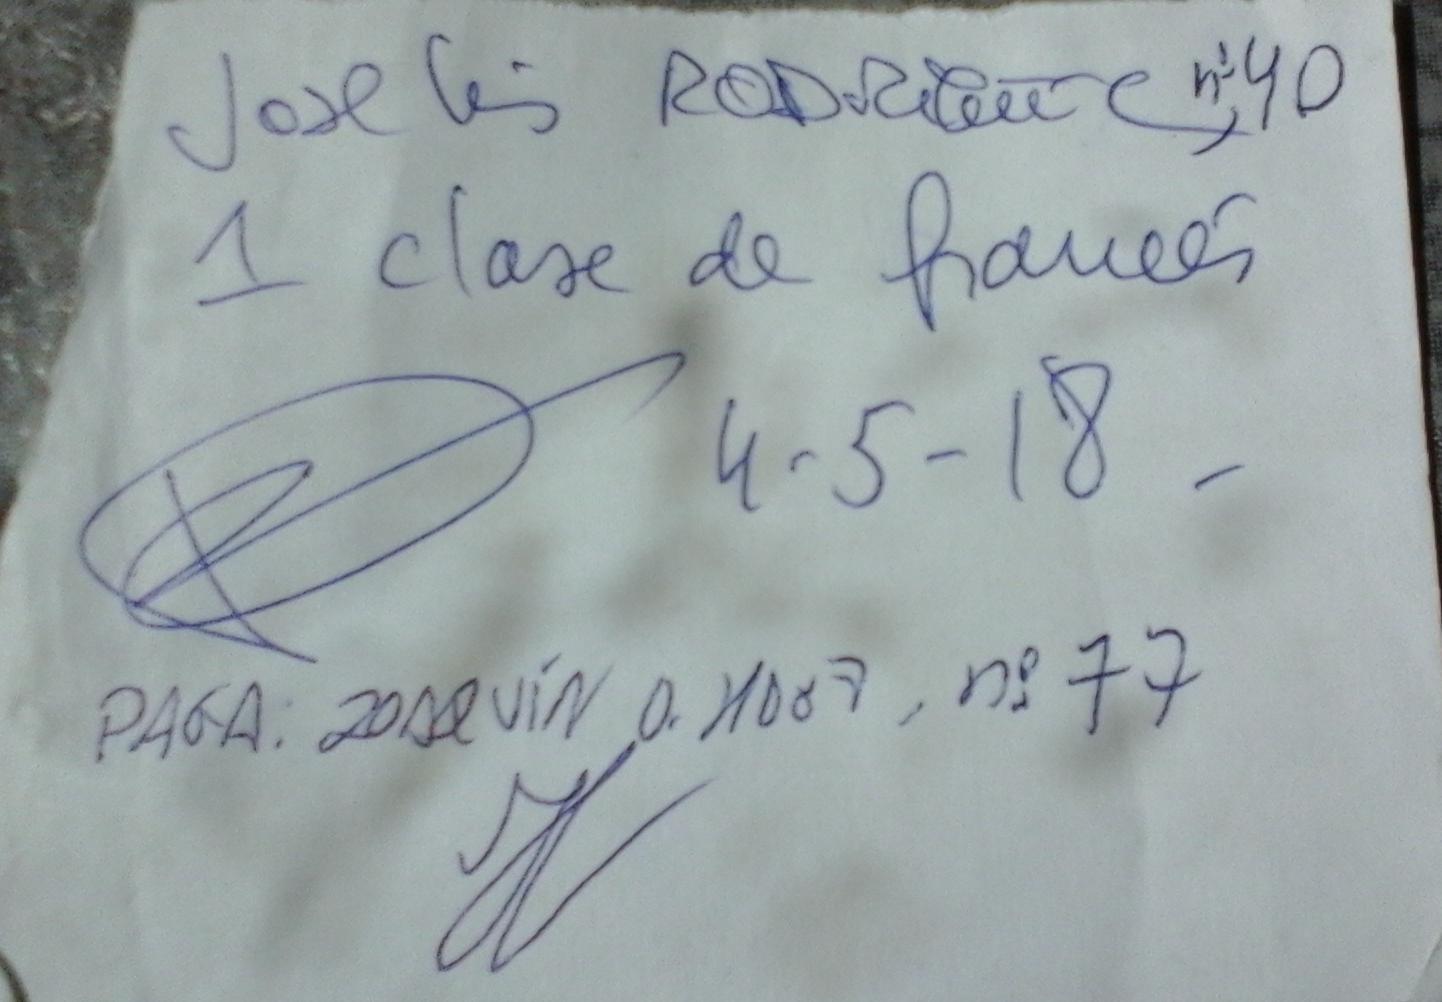 Jose Luis RODRiguez nº 40
1 clase de francés
4-5-18 -
PAGA: JOAQUÍN O. , nº 77